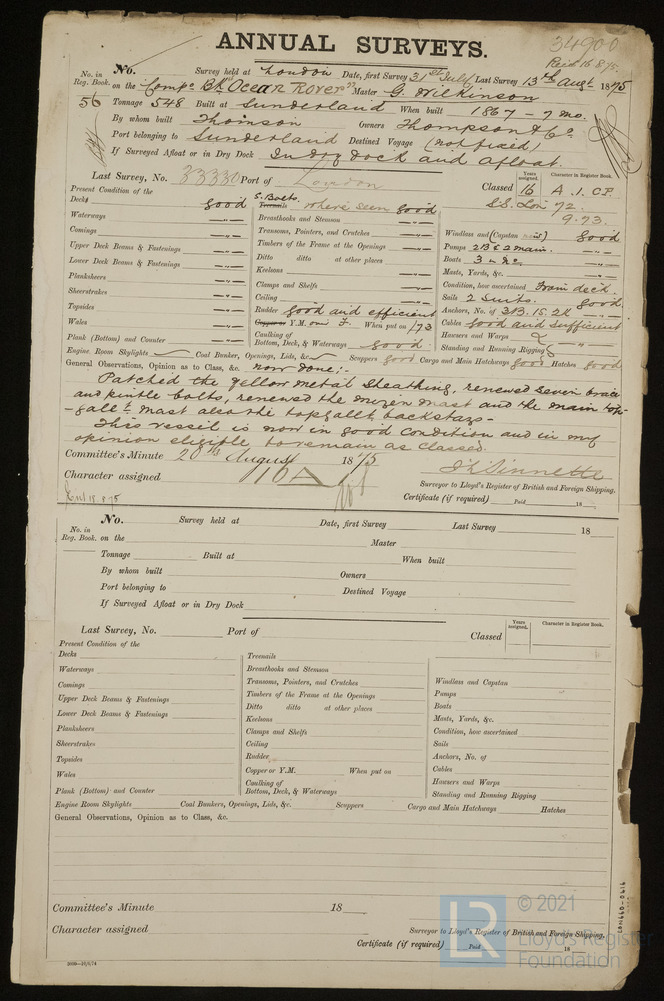 34900
Recd 16.8.75
ANNUAL SURVEYS.
No. in Reg. Book.
No. Survey held at London Date, first Survey 31st July Last Survey 13th Augt 1875
on the Compe Bk "Ocean Rover" Master G. Wilkinson
56 Tonnage 548 Built at Sunderland When built 1867 - 7 mo.
By whom built Thomson Owners Thompson & Co
Port belonging to Sunderland Destined Voyage (not fixed)
If Surveyed Afloat or in Dry Dock In dry dock and afloat.
Last Survey, No. 33330 Port of London Classed
Years assigned. 16
Character in Register Book. A.1. C.P.
S.S. Lon 72.
9.73.
Present Condition of the
Decks good
Waterways
Comings
Upper Deck Beams & Fastenings
Lower Deck Beams & Fastenings
Planksheers
Sheerstrakes
Topsides
Wales
Plank (Bottom) and Counter
S. Bolts.
Treenails where seen good
Breasthooks and Stemson
Transoms, Pointers, and Crutches
Timbers of the Frame at the Openings
Ditto ditto at other places
Keelsons
Clamps and Shelfs
Ceiling
Rudder good and efficient
Copper or Y.M. on F. When put on /73
Caulking of Bottom, Deck, & Waterways good.
Windlass and Capstan good
Pumps 2B & 2 main.
Boats 3
Masts, Yards, &c.
Condition, how ascertained From deck.
Sails 2 Suits. good
Anchors, No. of 3B. 1S. 2K
Cables good and sufficient
Hawsers and Warps
Standing and Running Rigging
Engine Room Skylights Coal Bunker, Openings, Lids, &c. Scuppers good Cargo and Main Hatchways good Hatches good
General Observations, Opinion as to Class, &c. now done:-
Patched the yellow metal sheathing, renewed seven brace
and pintle bolts, renewed the mizen mast and the main top
-gallt mast also the topgallt backstays-
This vessel is now in good condition and in my
opinion eligible to remain as Classed.
Committee's Minute 20th August 1875
Character assigned 16 A
Surveyor to Lloyd's Register of British and Foreign Shipping.
Certificate (if required) Paid 18
No. Survey held at Date, first Survey Last Survey 18
No. in Reg. Book. on the Master
Tonnage Built at When built
By whom built Owners
Port belonging to Destined Voyage
If Surveyed Afloat or in Dry Dock
Last Survey, No. Port of Classed
Years assigned.
Character in Register Book.
Present Condition of the
Decks
Waterways
Comings
Upper Deck Beams & Fastenings
Lower Deck Beams & Fastenings
Planksheers
Sheerstrakes
Topsides
Wales
Plank (Bottom) and Counter
Treenails
Breasthooks and Stemson
Transoms, Pointers, and Crutches
Timbers of the Frame at the Openings
Ditto ditto at other places
Keelsons
Clamps and Shelfs
Ceiling
Rudder
Copper or Y.M. When put on
Caulking of Bottom, Deck, & Waterways
Windlass and Capstan
Pumps
Boats
Masts, Yards, &c.
Condition, how ascertained
Sails
Anchors, No. of
Cables
Hawsers and Warps
Standing and Running Rigging
Engine Room Skylights Coal Bunkers, Openings, Lids, &c. Scuppers Cargo and Main Hatchways Hatches
General Observations, Opinion as to Class, &c.
Committee's Minute 18
Character assigned
Surveyor to Lloyd's Register of British and Foreign Shipping.
Certificate (if required) Paid 18
2000-10/6/74
LR
© 2021
Lloyd's Register
Foundation
LON660-0416